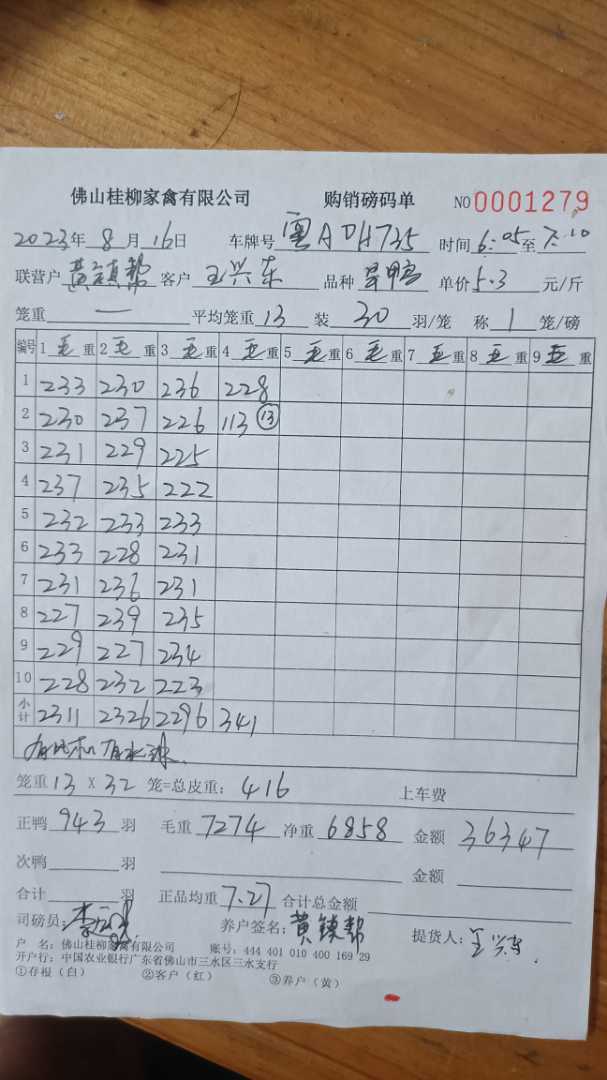 佛山桂柳家禽有限公司 购销磅码单 NO 0001279
2023年 8月 16日 车牌号 粤ADH735 时间 6:05 至 7:10
联营户 黄镇帮 客户 王兴东 品种 旱鸭 单价 5.3 元/斤
笼重 — 平均笼重 13 装 30 羽/笼 称 1 笼/磅
编号 1 毛重 2 毛重 3 毛重 4 毛重 5 毛重 6 毛重 7 毛重 8 毛重 9 毛重
1 233 230 236 228
2 230 237 226 113 ⑬
3 231 229 225
4 237 235 222
5 232 233 233
6 233 228 231
7 231 236 231
8 227 239 235
9 229 227 234
10 228 232 223
小计 2311 2326 2296 341
笼重 13 X 32 笼=总皮重: 416 上车费
正鸭 943 羽 毛重 7274 净重 6858 金额 36347
次鸭 羽 金额
合计 羽 正品均重 7.27 合计总金额
司磅员: 李 养户签名: 黄镇帮 提货人: 王兴东
户 名: 佛山桂柳家禽有限公司 账号: 444 401 010 400 169 29
开户行: 中国农业银行广东省佛山市三水区三水支行
①存根（白） ②客户（红） ③养户（黄）